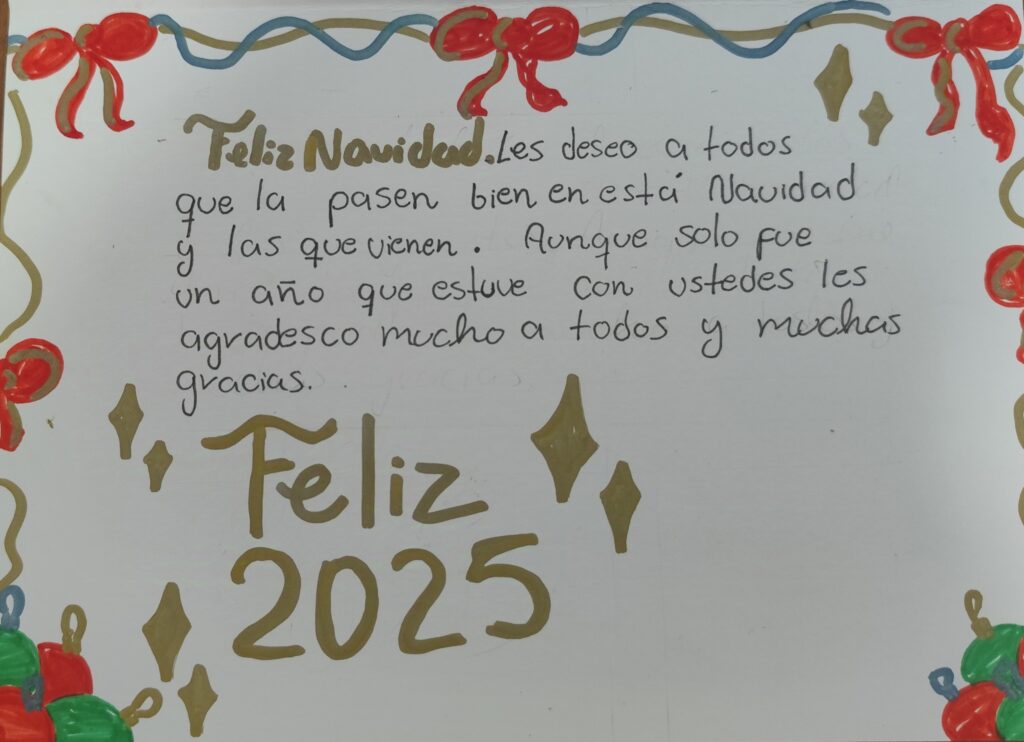 Feliz Navidad. Les deseo a todos
que la pasen bien en está Navidad
y las que vienen. Aunque solo fue
un año que estuve con ustedes les
agradesco mucho a todos y muchas
gracias.
Feliz
2025